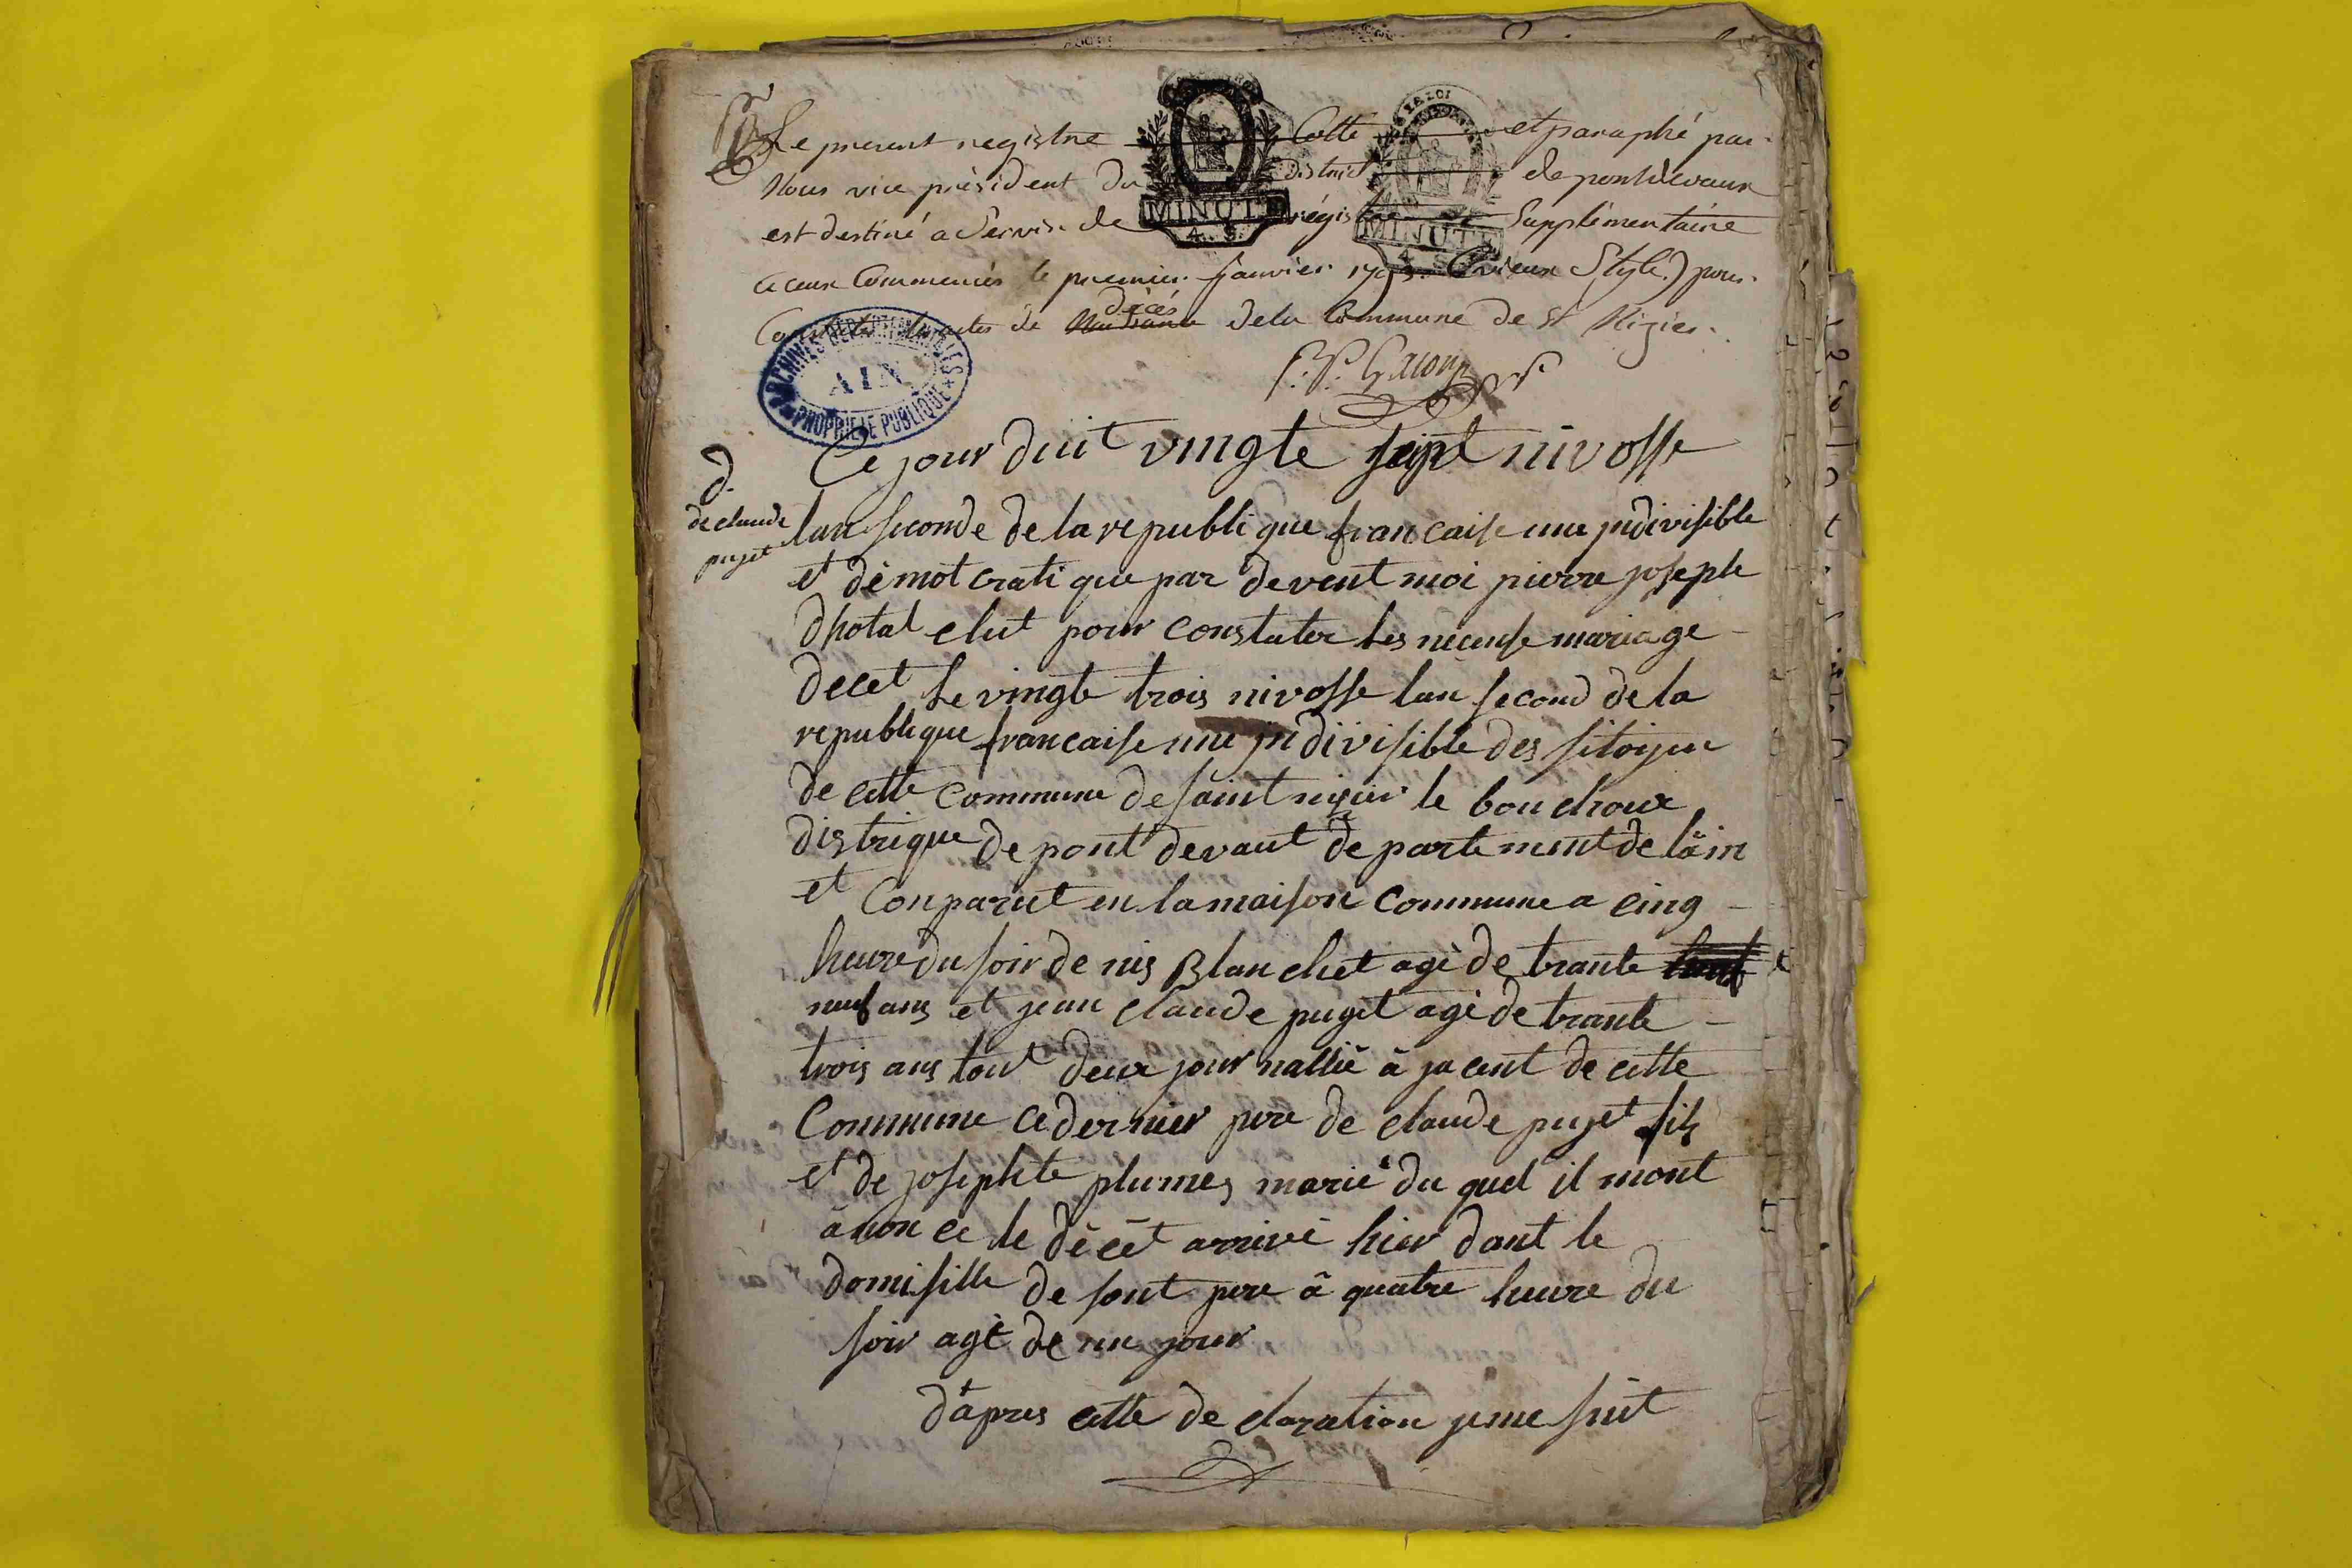 Le present registre Cotté et paraphé par
Nous vice président du District de pontdevaux
est destiné a Servir de régistre Supplémentaire
a ceux Commencés le premier Janvier 1793 (vieux Style) pour
Constater les actes de Naissance décés dela Commune de St Nizier.
MINUTE
4. S.
LA LOI
MINUTE
4. S.
ARCHIVES DEPARTEMENTALES
AIN
PROPRIETE PUBLIQUE
Ce jour duit vingte sept nivosse
D.
de claude
puget
lan seconde de la republique francaise une jndivisible
et démotcratique par devent moi pierre joseph
dhotal elut pour constater les necense mariage
decet le vingte trois nivosse lan second de la
republique francaise une jndivisible des sitoyen
de cette commune de saint nizier le bouchoux
distrique de pont devaut departement de lain
et Conparut en la maison commune a cinq
heure du soir denis Blanchet agé de trante
neuf ans et jean claude puget agé de trante
trois ans tout deux journallié à jacent de cette
Commune ce dernier pere de claude puget fils
et de josephte plumes marié du quel il mont
anonce le décèt arrivé hier dant le
domisille de sont pere à quatre heure du
soir agé de un jour
dapres cette declaration jeme suit